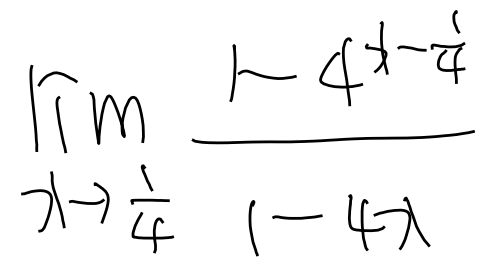 lim_{x→1/4} (1 - 4^{x - 1/4}) / (1 - 4x)